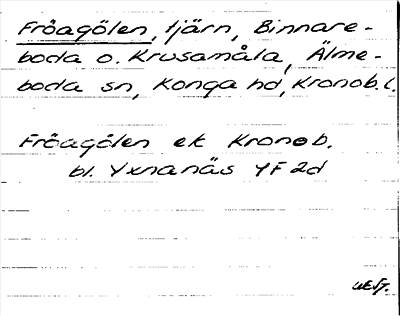 Fröagölen, tjärn, Binnare-
boda o. Krusamåla, Älme-
boda sn, Konga hd, Kronob. l.
Fröagölen ek Kronob.
bl. Yxnanäs YF 2d